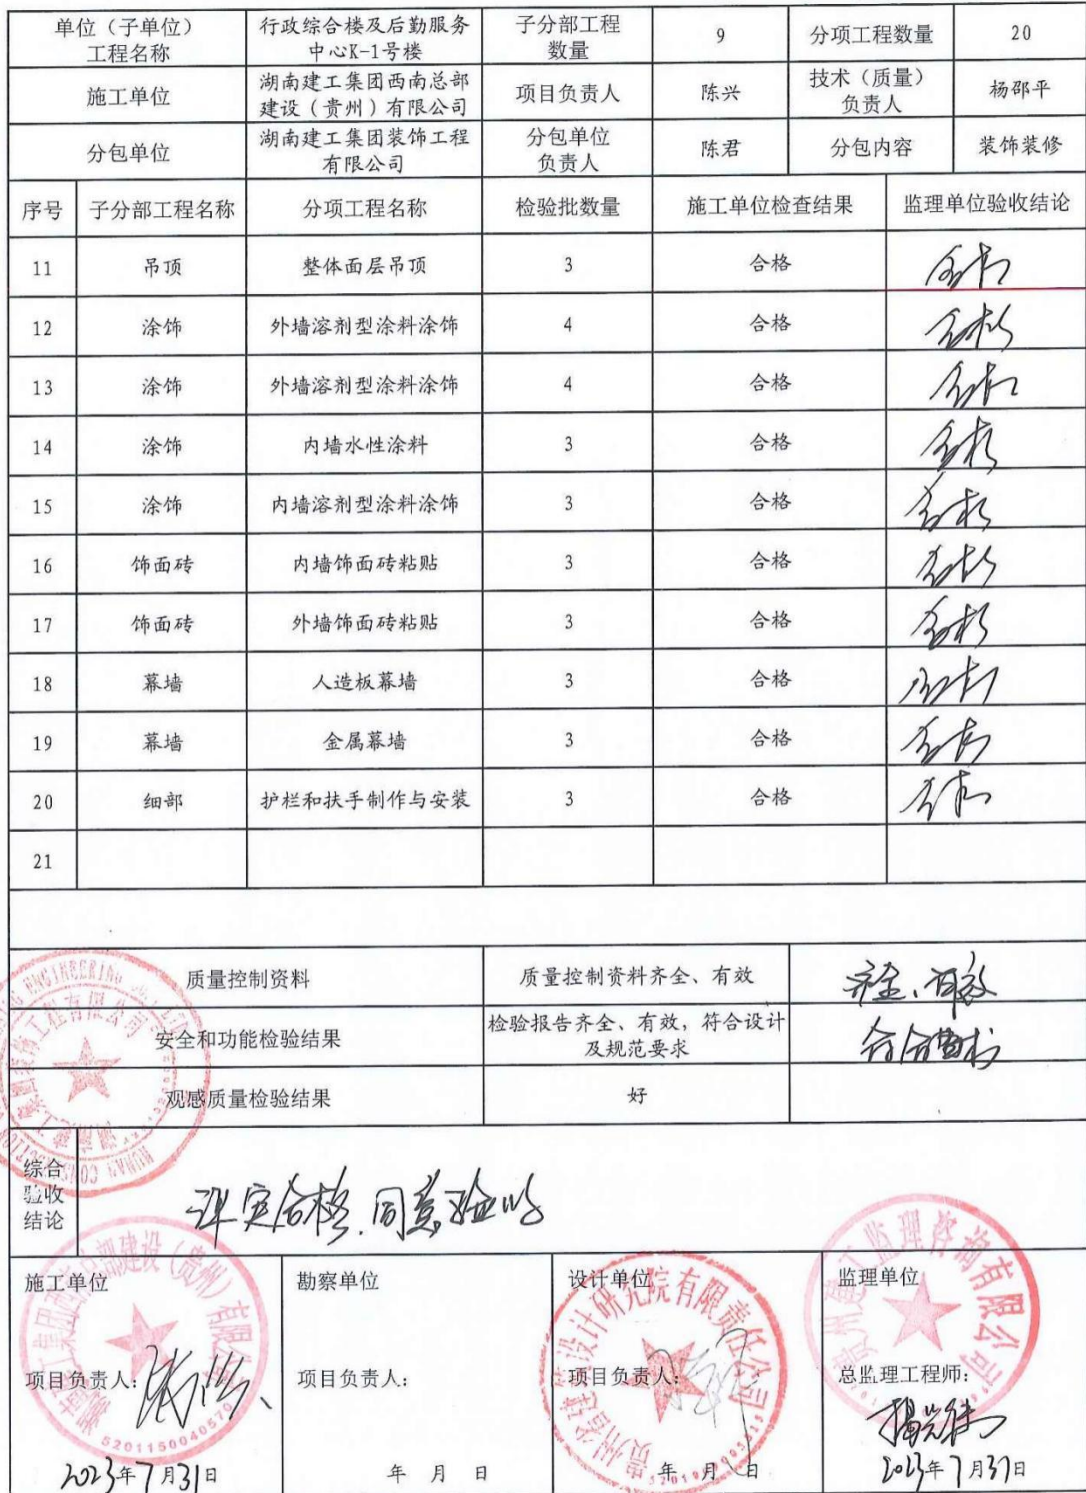 单位（子单位）
工程名称
行政综合楼及后勤服务
中心K-1号楼
子分部工程
数量
9
分项工程数量
20
施工单位
湖南建工集团西南总部
建设（贵州）有限公司
项目负责人
陈兴
技术（质量）
负责人
杨邵平
分包单位
湖南建工集团装饰工程
有限公司
分包单位
负责人
陈君
分包内容
装饰装修
序号 子分部工程名称 分项工程名称 检验批数量 施工单位检查结果 监理单位验收结论
11 吊顶 整体面层吊顶 3 合格 合格
12 涂饰 外墙溶剂型涂料涂饰 4 合格 合格
13 涂饰 外墙溶剂型涂料涂饰 4 合格 合格
14 涂饰 内墙水性涂料 3 合格 合格
15 涂饰 内墙溶剂型涂料涂饰 3 合格 合格
16 饰面砖 内墙饰面砖粘贴 3 合格 合格
17 饰面砖 外墙饰面砖粘贴 3 合格 合格
18 幕墙 人造板幕墙 3 合格 合格
19 幕墙 金属幕墙 3 合格 合格
20 细部 护栏和扶手制作与安装 3 合格 合格
21
质量控制资料 质量控制资料齐全、有效 齐全、有效
安全和功能检验结果
检验报告齐全、有效，符合设计
及规范要求
观感质量检验结果 好
综合
验收
结论
同意验收
施工单位 勘察单位 设计单位 监理单位
项目负责人： 项目负责人： 项目负责人： 总监理工程师：
5201150040570
2023年7月31日 年 月 日 年 月 日 2023年7月31日